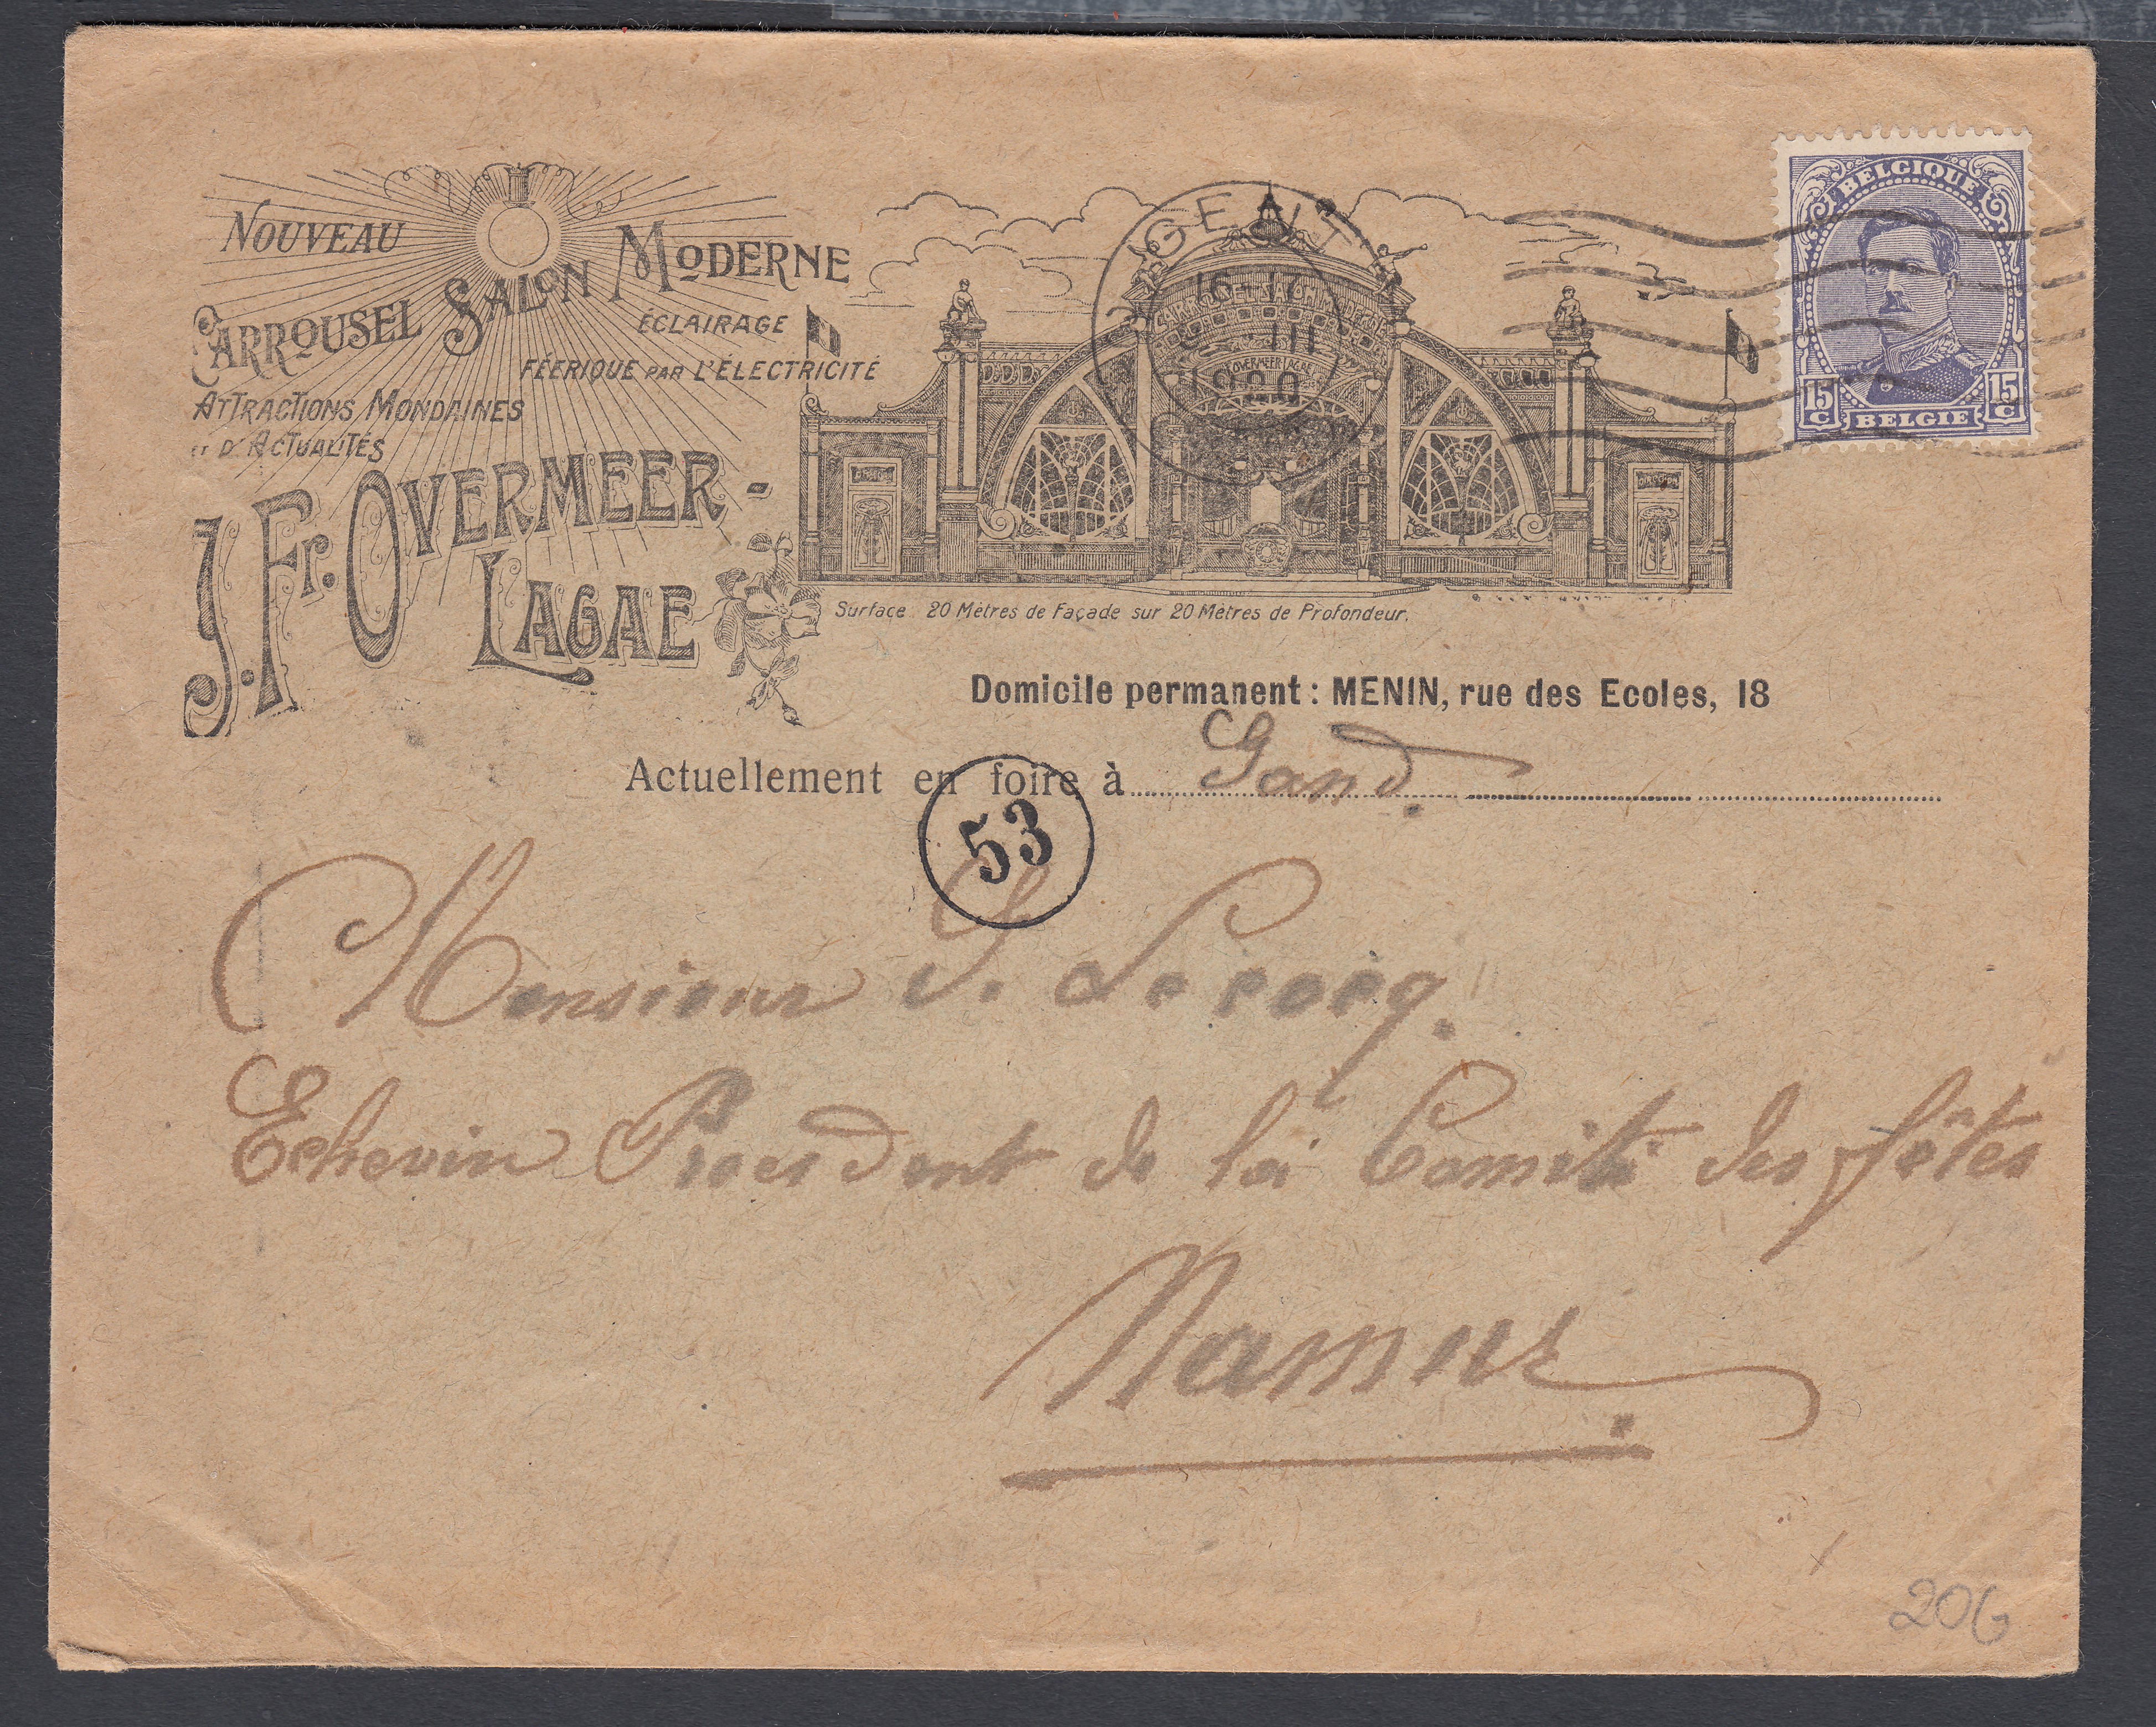 NOUVEAU
CARROUSEL SALON MODERNE
ÉCLAIRAGE
FÉERIQUE PAR L'ÉLECTRICITÉ
ATTRACTIONS MONDAINES
ET D'ACTUALITÉS
J. Fr. OVERMEER-
LAGAE
CARROUSEL SALON MODERNE
OVERMEER LAGAE
DIRECTION
GENT
16-17
III
1920
BELGIQUE
15 C 15 C
BELGIË
Surface 20 Mètres de Façade sur 20 Mètres de Profondeur.
Domicile permanent : MENIN, rue des Ecoles, 18
Actuellement en foire à Gand.
53
Monsieur J. Lecocq.
Echevin President de la Comité des fêtes
Namur.
206